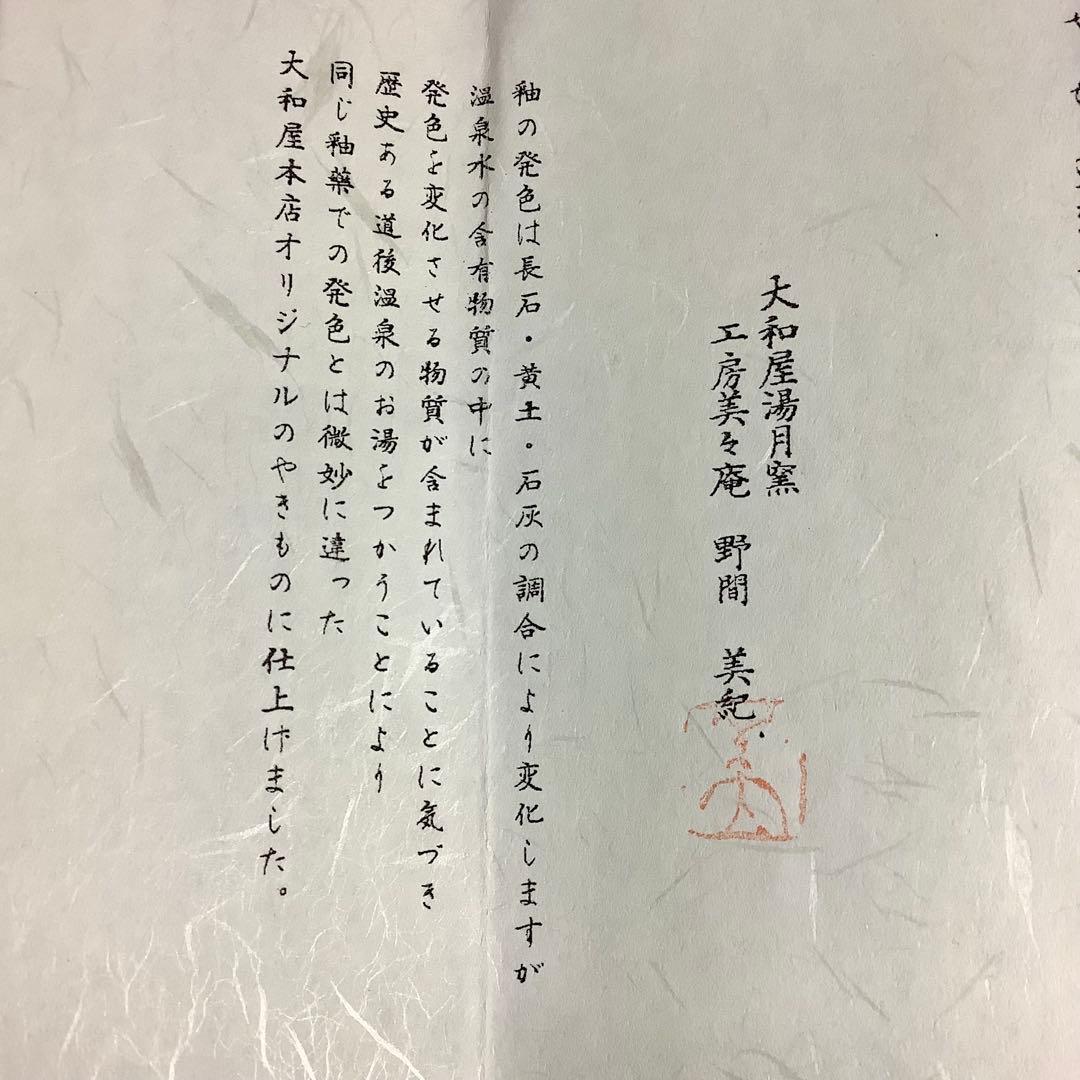 大和屋湯月窯
工房美々庵　野間　美紀
釉の発色は長石・黄土・石灰の調合により変化しますが
温泉水の含有物質の中に
発色を変化させる物質が含まれていることに気づき
歴史ある道後温泉のお湯をつかうことにより
同じ釉藥での発色とは微妙に違った
大和屋本店オリジナルのやきものに仕上げました。